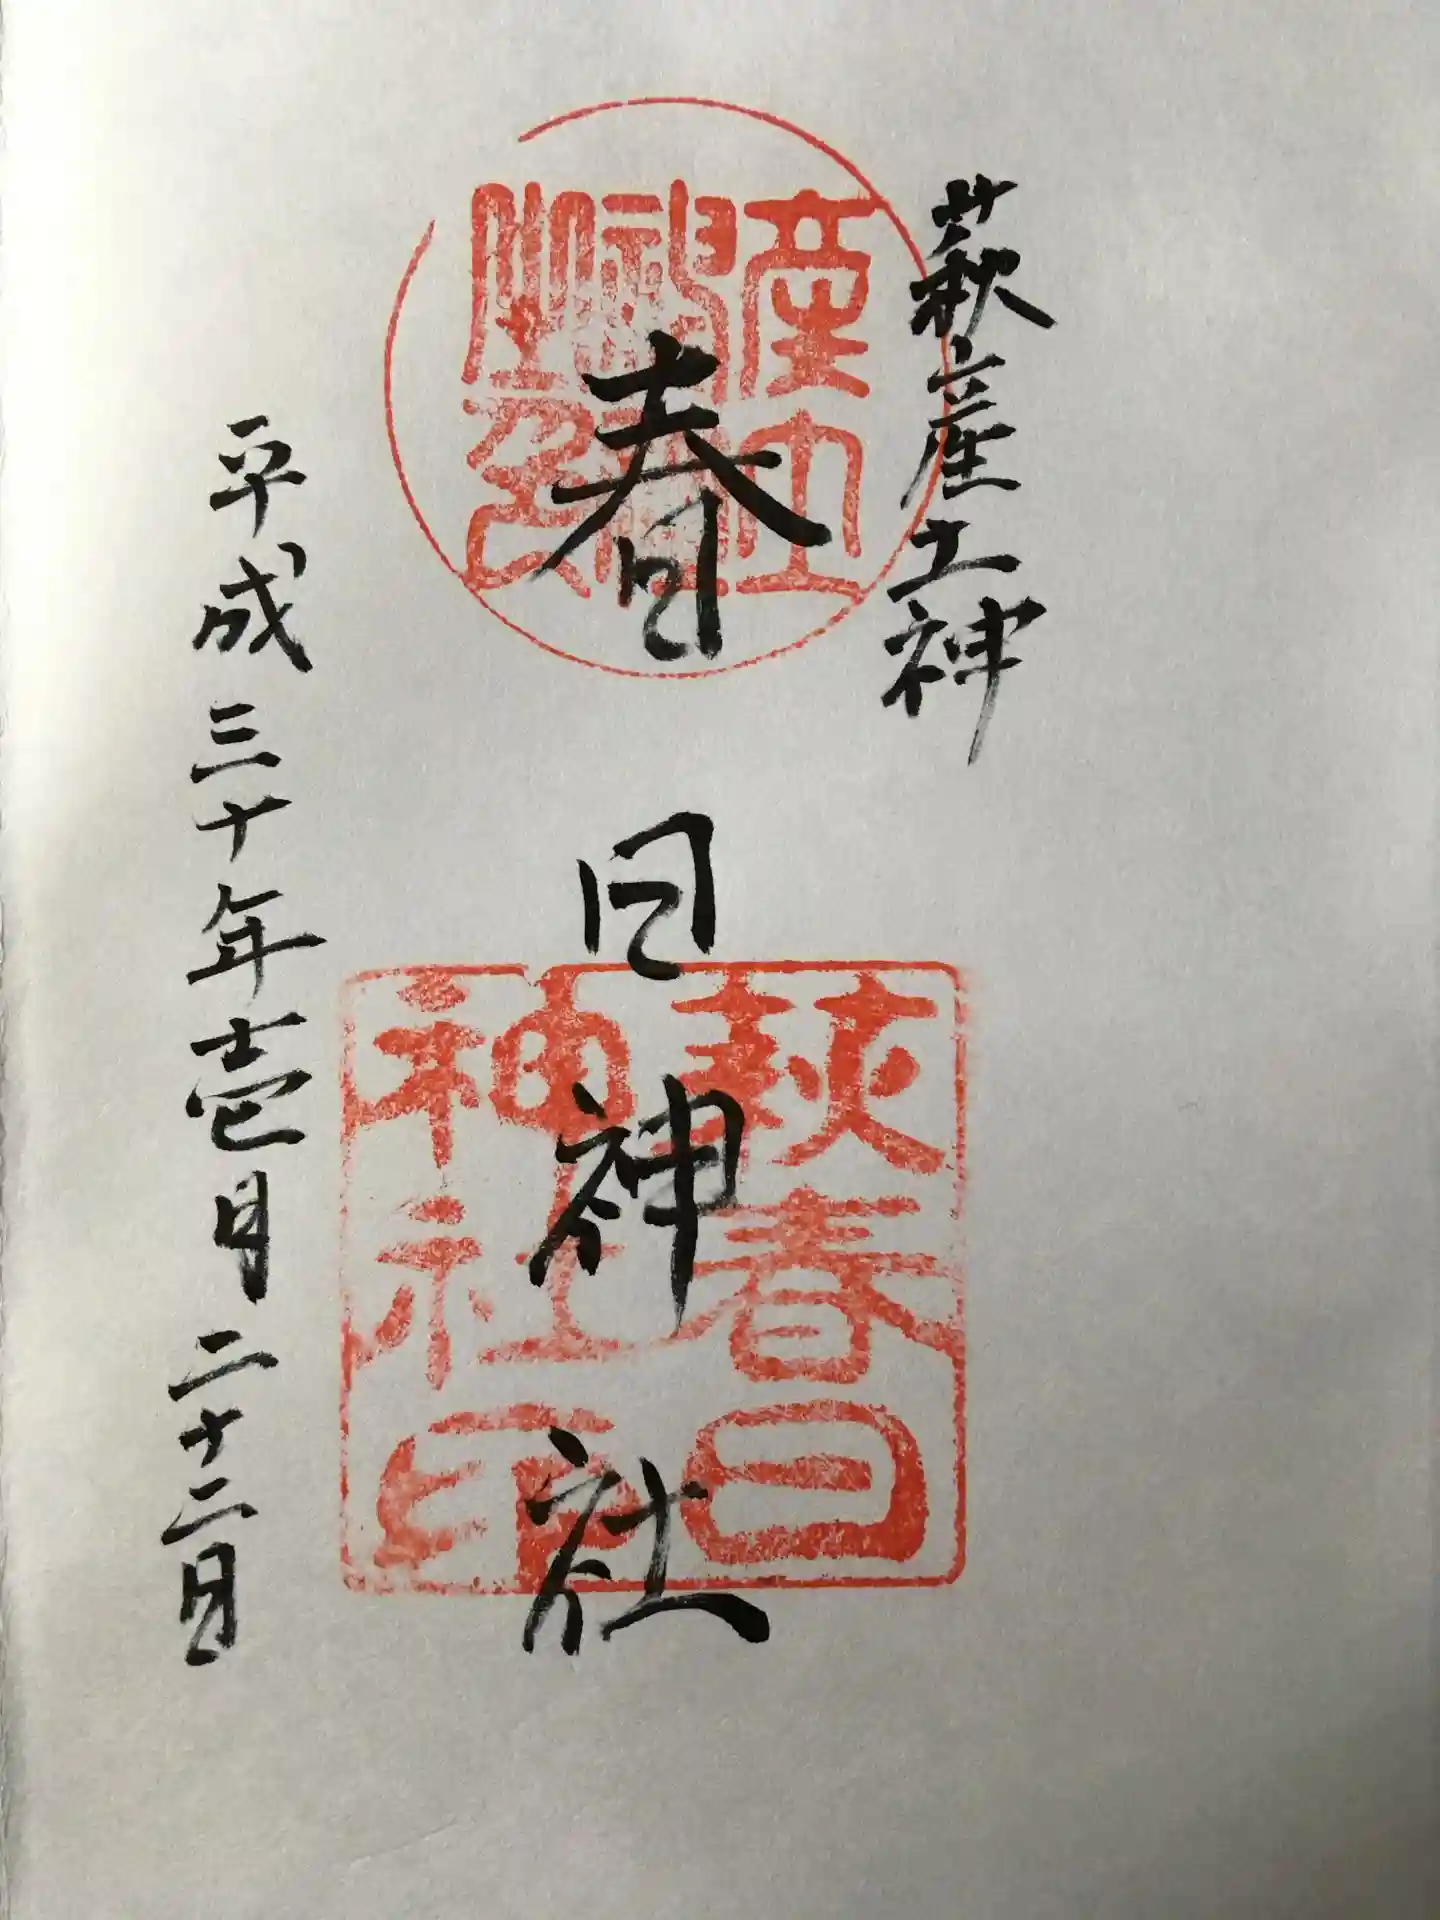 萩産土神
春日神社
平成三十年壱月二十二日
産土
萩春日
神社印